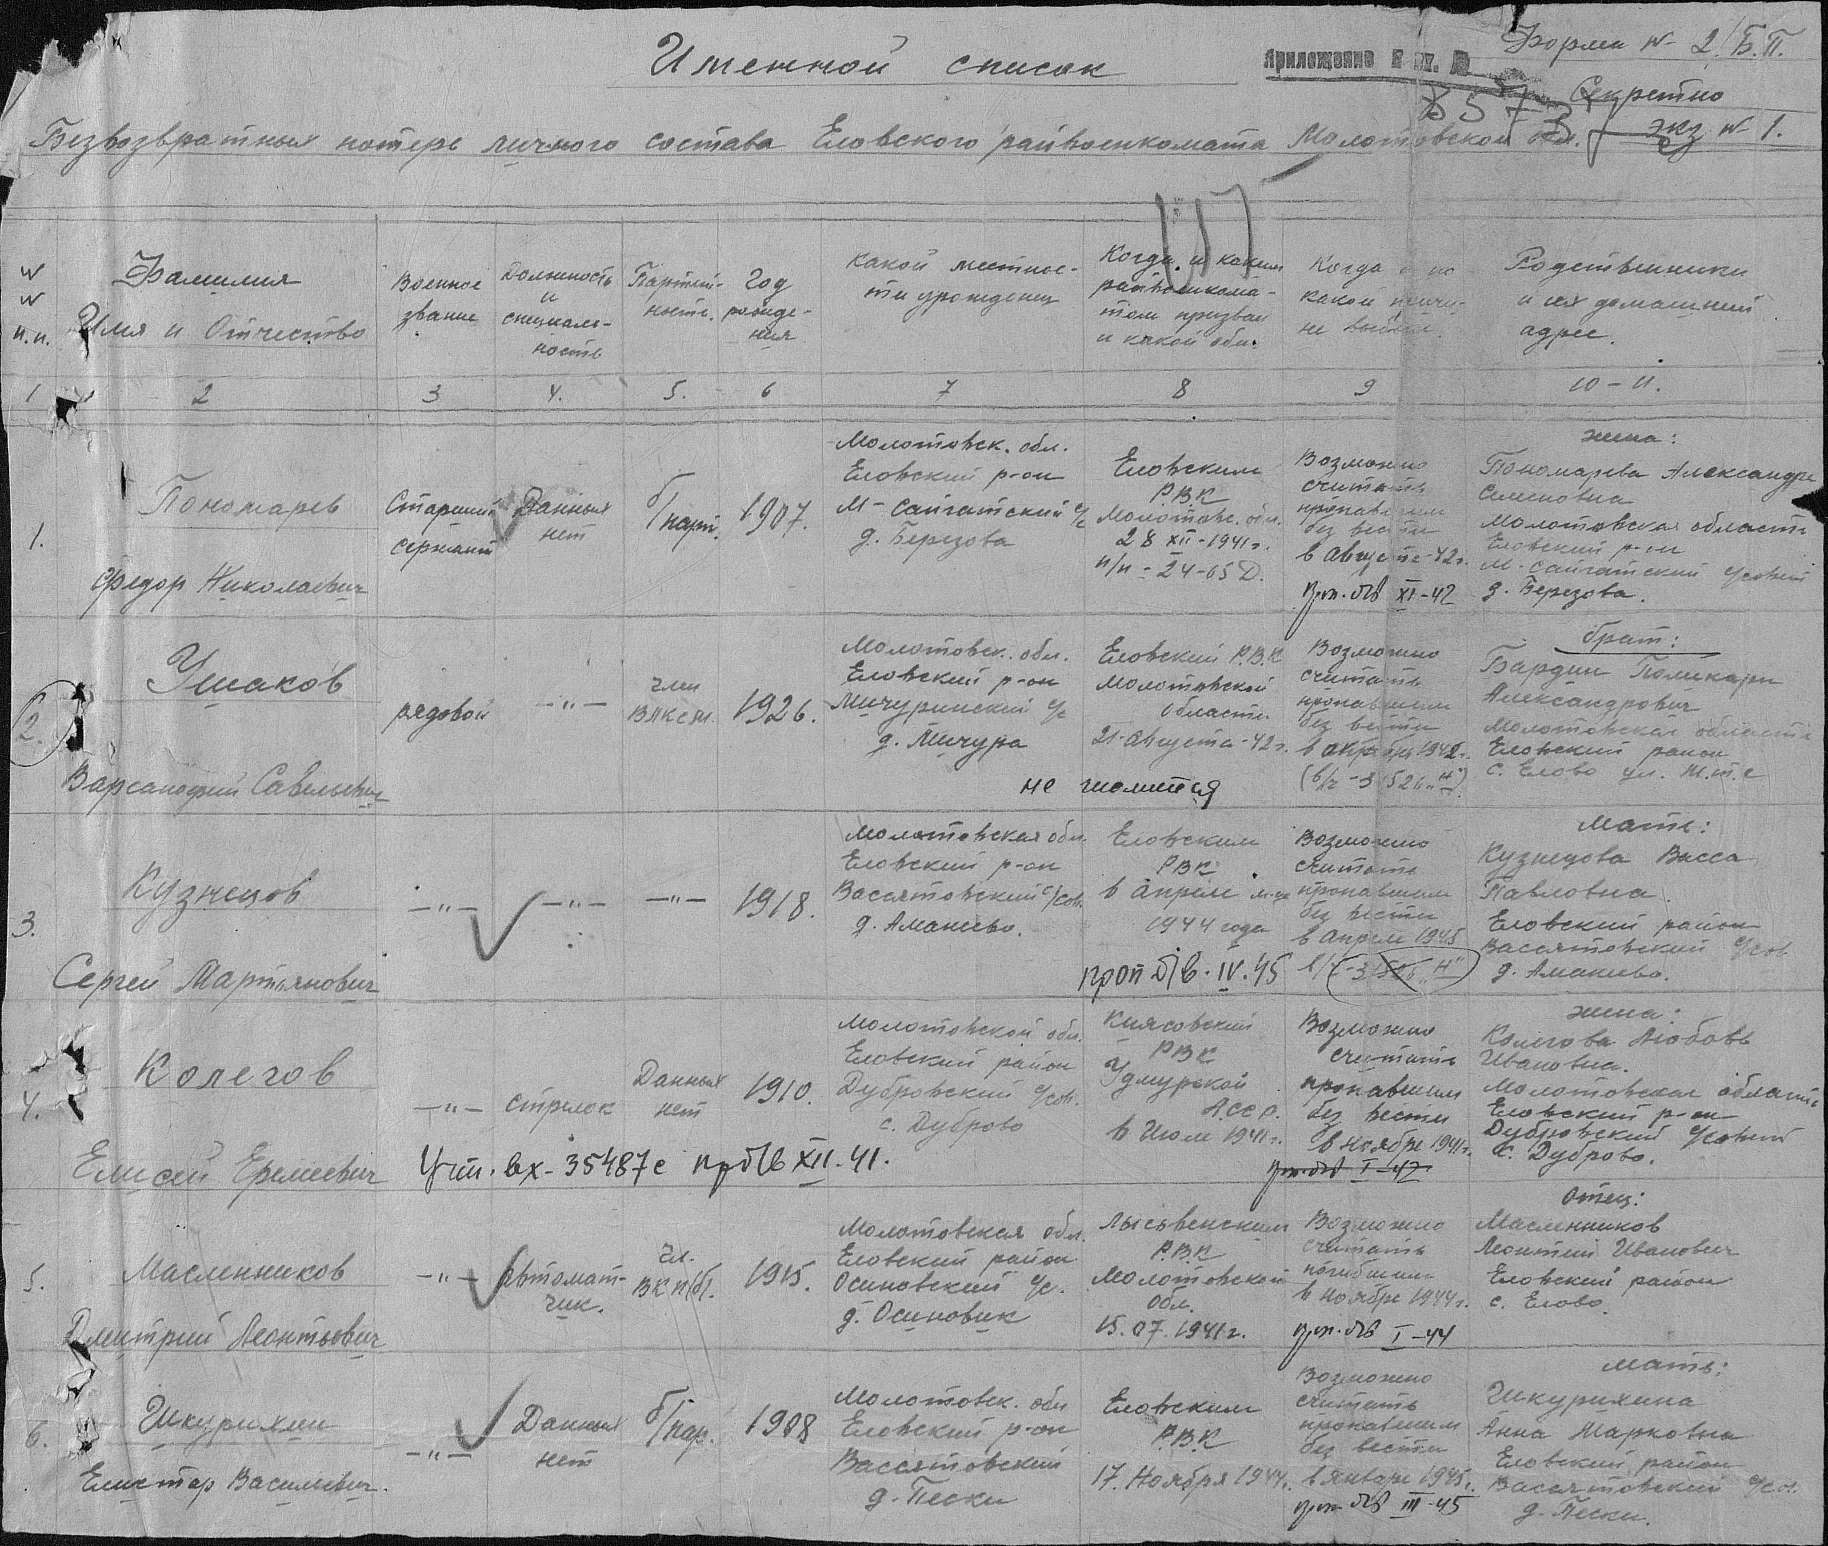 Форма № 2/Б.П.
Именной список
Приложение к вх. №
Секретно
экз № 1.
Безвозвратных потерь личного состава Еловского райвоенкомата Молотовской обл.
№ № п.п.
Фамилия Имя и Отчество
Военное звание
Должность и специальность
Партийность
Год рождения
Какой местности уроженец
Когда и каким райвоенкоматом призван и какой обл.
Когда и по какой причине выбыл.
Родственники и их домашний адрес.
1 2 3 4. 5. 6 7 8 9 10-11.
1.
Пономарев
Федор Николаевич
Старший сержант
Данных нет
б/парт.
1907.
Молотовск. обл.
Еловский р-он
М-Сайгатский с/с
д. Березова
Еловским
РВК
Молотовс. обл.
28 XII-1941г.
п/п - 24-65 Д.
Возможно
считать
пропавшим
без вести
в августе-42г.
проп. б/в XI-42
жена:
Пономарева Александра
Семеновна
Молотовская область
Еловский р-он
М-Сайгатский с/совет
д. Березова.
2.
Ушаков
Варсанофий Савельевич
рядовой
-"-
член
ВЛКСМ.
1926.
Молотовск. обл.
Еловский р-он
Мичуринский с/с
д. Мичура
Еловский Р.В.К
Молотовской
области
21-августа-42г.
не числится
Возможно
считать
пропавшим
без вести
в октябре 1942г.
(в/ч-31526 "Н")
брат:
Бардин Поликарп
Александрович
Молотовская область
Еловский район
с. Елово ул.
3.
Кузнецов
Сергей Мартьянович
-"-
-"-
-"-
1918.
Молотовская обл.
Еловский р-он
Вассятовский с/сов.
д. Аманеево.
Еловским
РВК
в апреле м-це
1944 года
проп б/в. IV.45
Возможно
считать
пропавшим
без вести
в апреле 1945
в/ч-31526 "Н"
мать:
Кузнецова Васса
Павловна.
Еловский район
Вассятовский с/сов
д. Аманеево.
4.
Колегов
Елисей Еремеевич
-"-
стрелок
Данных
нет
1910.
Молотовской обл.
Еловский район
Дубровский с/сов.
с. Дуброво
Киясовский
РВК
Удмурской
АССР.
в Июле 1941г.
Возможно
считать
пропавшим
без вести
в ноябре 1941г.
проп. б/в I-42
жена:
Колегова Любовь
Ивановна.
Молотовская область
Еловский р-он
Дубровский с/совет
с. Дуброво.
Учт. вх-35487с пр б/в XII-41.
5.
Масленников
Дмитрий Леонтьевич
-"-
Автоматчик.
Чл.
ВКП(б).
1915.
Молотовская обл.
Еловский район
Осиновский с/с.
д. Осиновик
Лысьвенским
Р.В.К
Молотовской
обл.
15.07.1941г.
Возможно
считать
погибшим
в ноябре 1944г.
проп. б/в I-44
отец:
Масленников
Леонтий Иванович
Еловский район
с. Елово.
6.
Шкурихин
Елистар Васильевич.
-"-
Данных
нет
б/пар.
1908
Молотовск. обл
Еловский р-он
Вассятовский
д. Пески
Еловским
Р.В.К
17. Ноября 1944г.
Возможно
считать
пропавшим
без вести
в январе 1945г.
проп б/в III-45
мать:
Шкурихина
Анна Марковна
Еловский район
Вассятовский с/сов.
д. Пески.